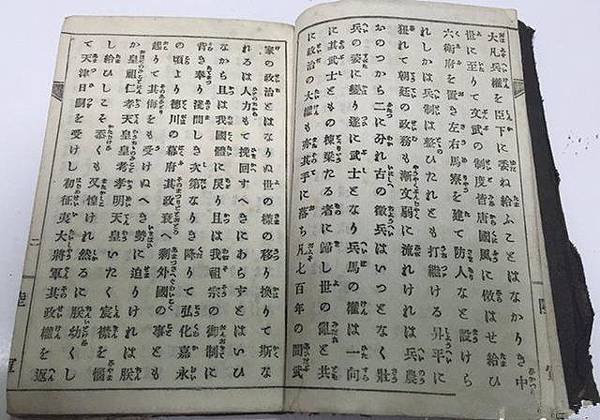 大凡兵權を臣下に委ね給ふことはなかりき中
世に至りて文武の制度皆唐國風に傚はせ給ひ
六衛府を置き左右馬寮を建て防人なと設けら
れしかは兵制は整ひたれとも打續ける昇平に
狃れて朝廷の政務も漸文弱に流れけれは兵農
おのつから二に分れ古の徴兵はいつとなく壯
兵の姿に變り遂に武士となり兵馬の權は一向
に其武士ともの棟梁たる者に歸し世の亂と共
に政治の大權も亦其手に落ち凡七百年の間武
家の政治とはなりぬ世の樣の移り換りて斯な
れるは人力もて挽回すへきにあらすとはいひ
なから且は我國體に戻り且は我祖宗の御制に
背き奉り淺間しき次第なりき降りて弘化嘉永
の頃より徳川の幕府其政衰へ剩外國の事とも
起りて其侮をも受けぬへき勢に迫りけれは朕
か皇祖仁孝天皇皇考孝明天皇いたく宸襟を惱
し給ひしこそ忝くも又惶けれ然るに朕幼くし
て天津日嗣を受けし初征夷大將軍其政權を返
二